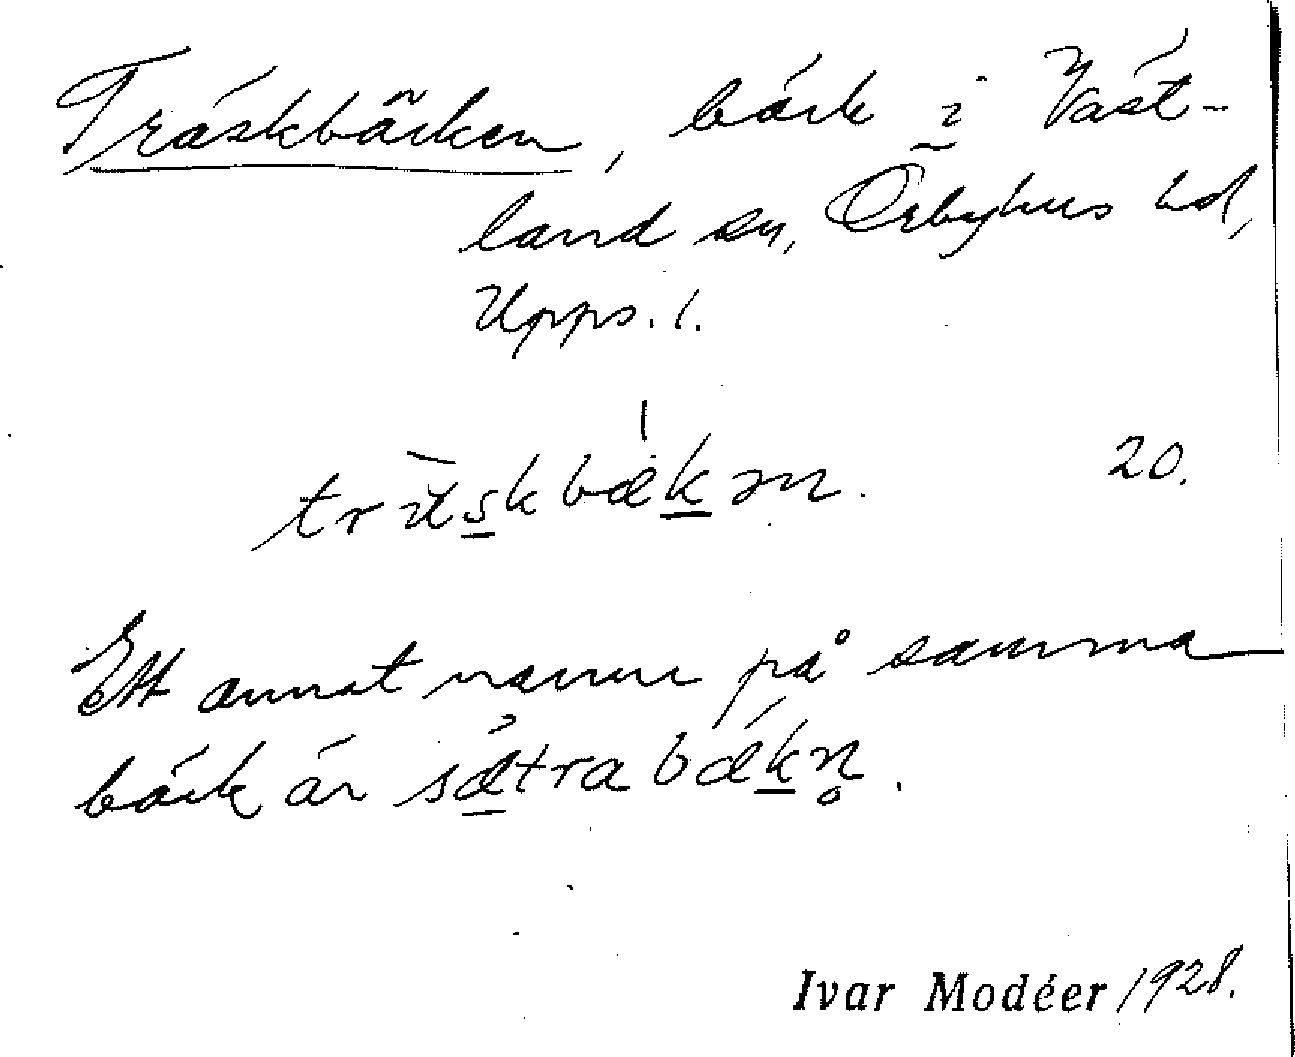 Träskbäcken, bäck i Väst-
land sn, Örbyhus hd,
Upps. l.
träskbækən. 20.
Ett annat namn på samma
bäck är sætrabækn̥.
Ivar Modéer /1928.